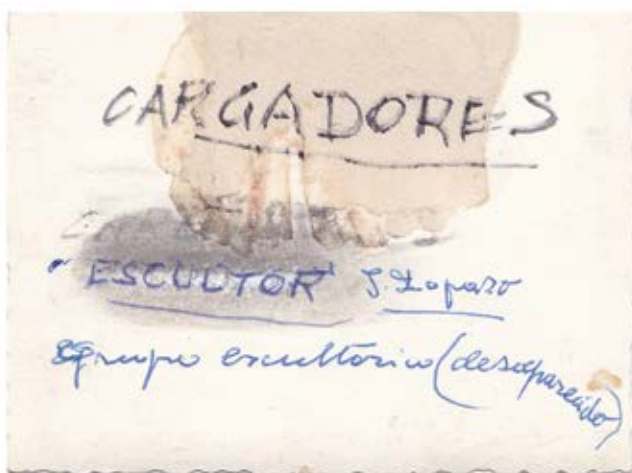 CARGADORES
"ESCULTOR" J. Loparo
grupo escultórico (desaparecido)